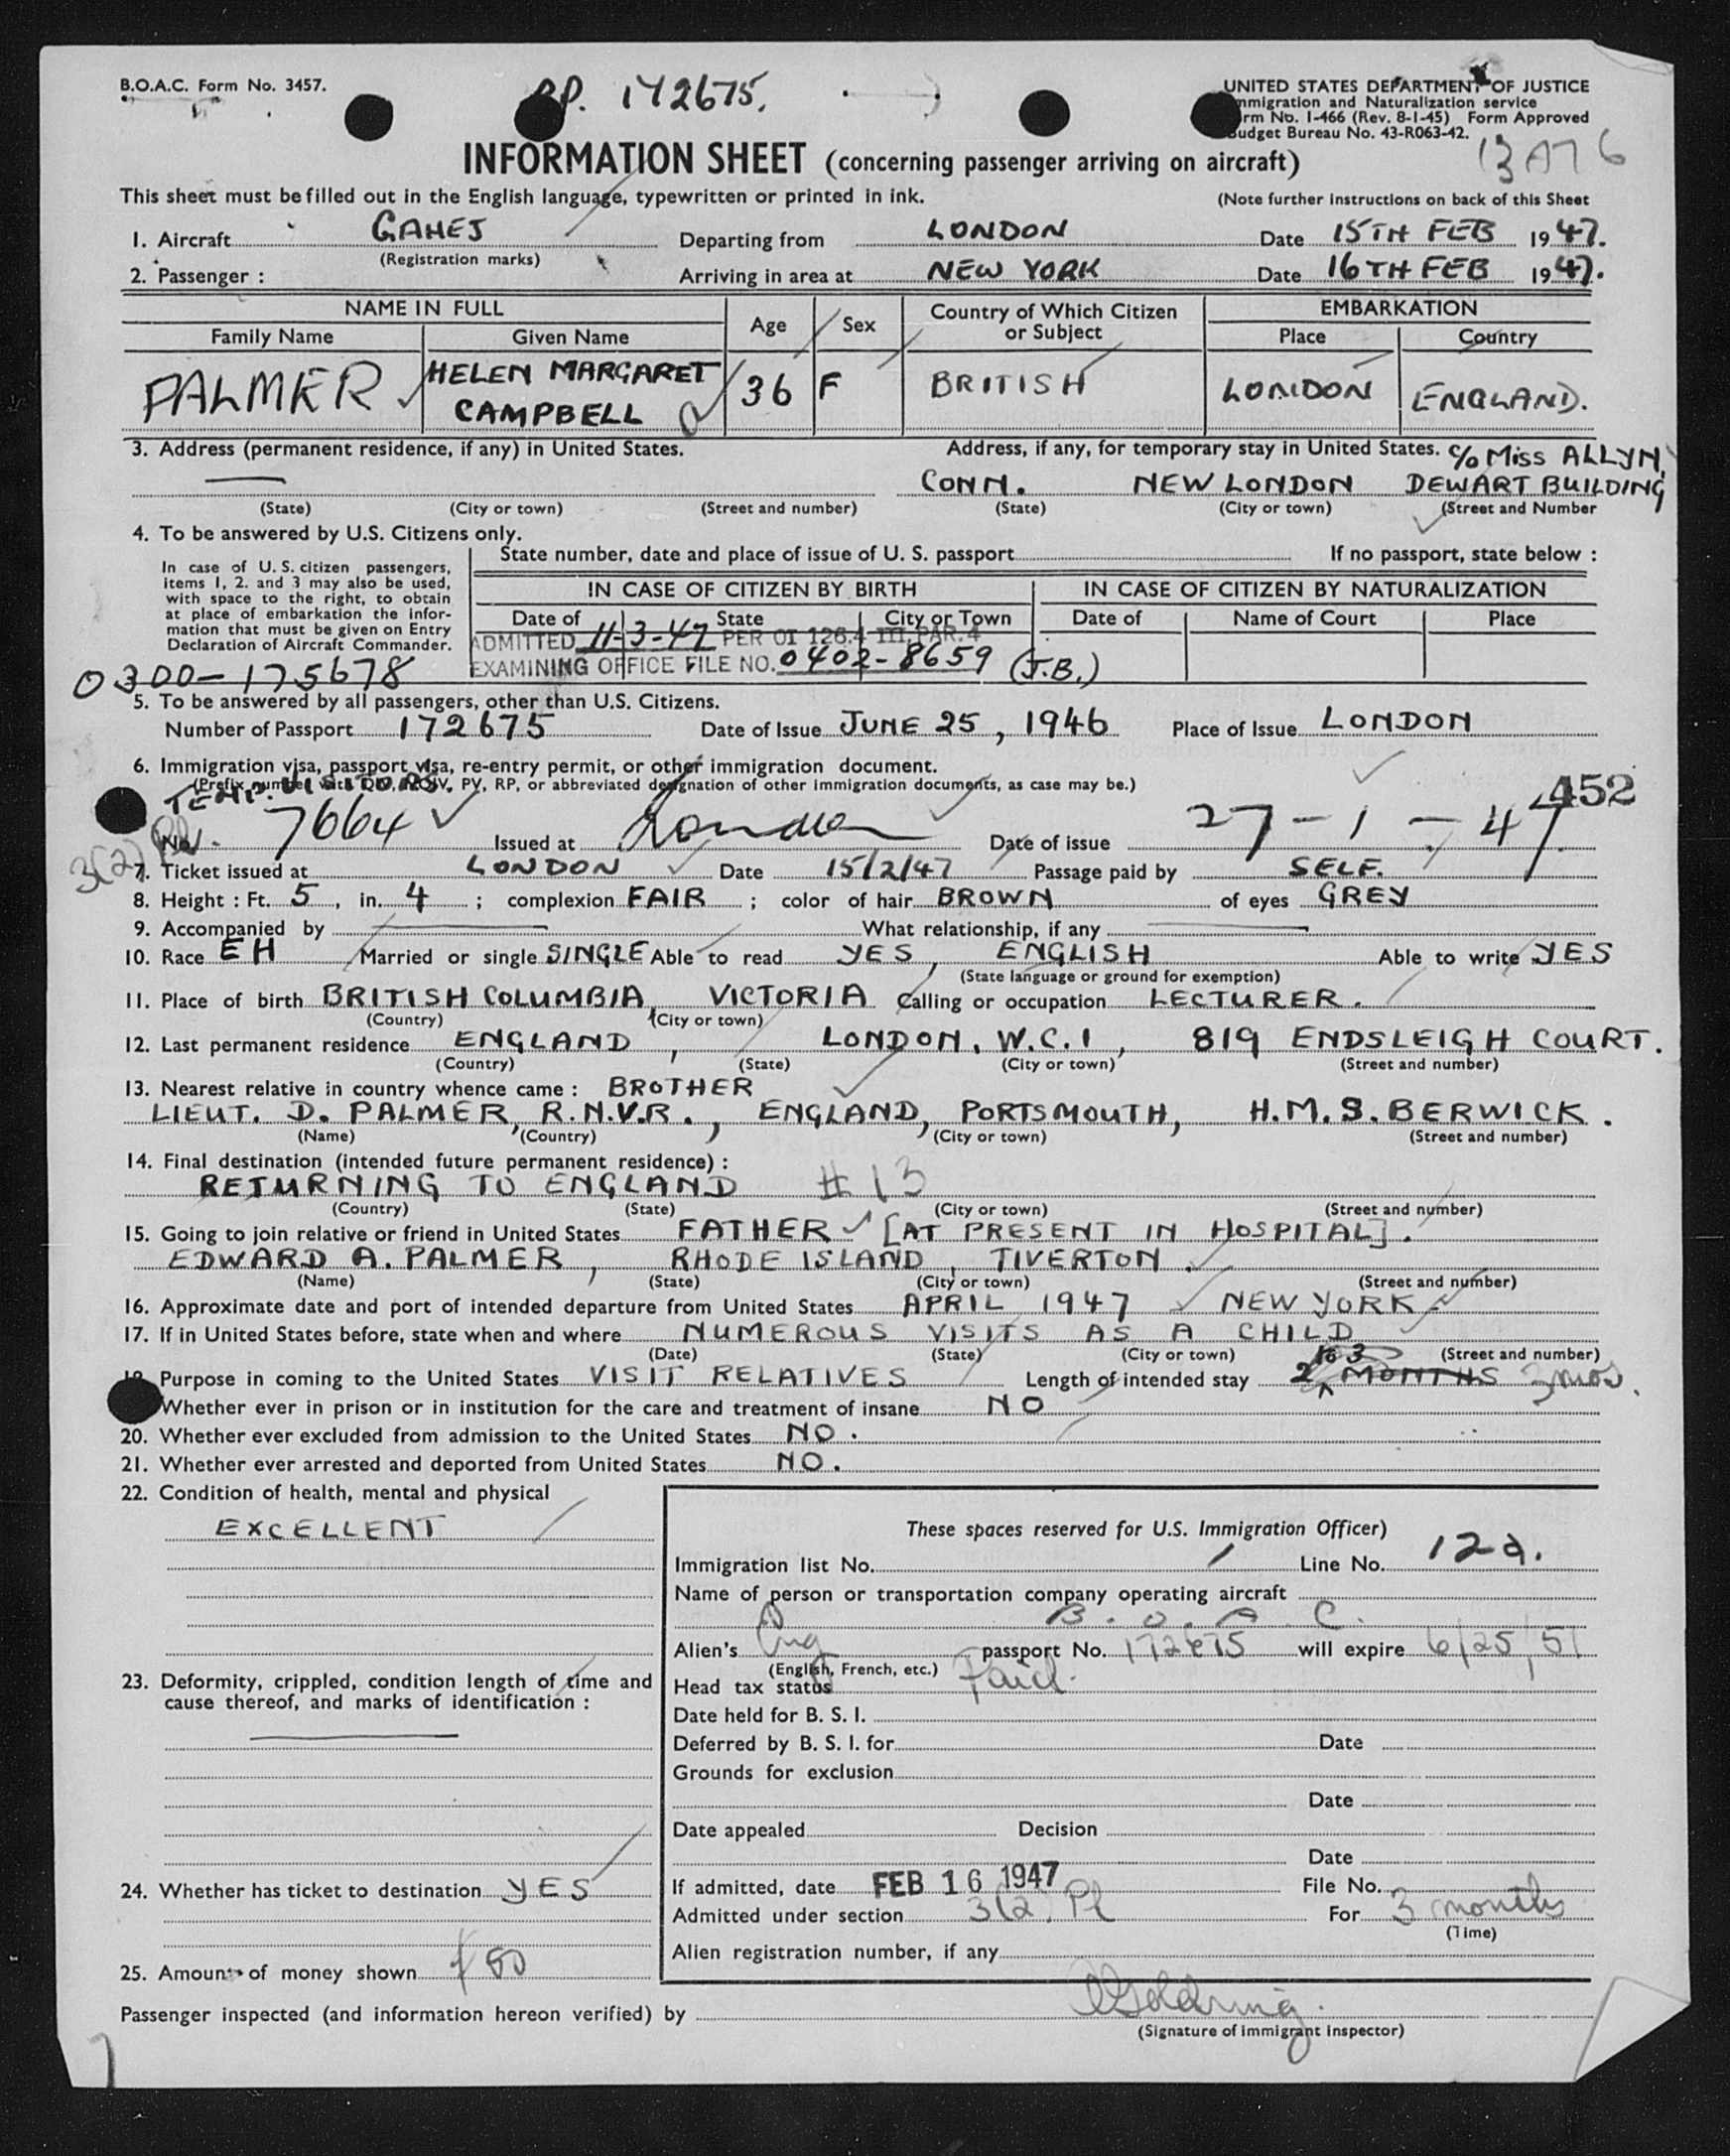 B.O.A.C. Form No. 3457.
PP. 172675.
UNITED STATES DEPARTMENT OF JUSTICE
Immigration and Naturalization service
Form No. I-466 (Rev. 8-1-45) Form Approved
Budget Bureau No. 43-R063-42.
INFORMATION SHEET (concerning passenger arriving on aircraft)
This sheet must be filled out in the English language, typewritten or printed in ink.
(Note further instructions on back of this Sheet
1. Aircraft GAHEJ Departing from LONDON Date 15TH FEB 1947.
(Registration marks)
2. Passenger : Arriving in area at NEW YORK Date 16TH FEB 1947.
NAME IN FULL Age Sex Country of Which Citizen or Subject EMBARKATION
Family Name Given Name Place Country
PALMER HELEN MARGARET CAMPBELL 36 F BRITISH LONDON ENGLAND.
3. Address (permanent residence, if any) in United States. Address, if any, for temporary stay in United States. C/o Miss ALLYN,
CONN. NEW LONDON DEWART BUILDING
(State) (City or town) (Street and number) (State) (City or town) (Street and Number
4. To be answered by U.S. Citizens only.
State number, date and place of issue of U. S. passport If no passport, state below :
In case of U. S. citizen passengers,
items 1, 2. and 3 may also be used,
with space to the right, to obtain
at place of embarkation the infor-
mation that must be given on Entry
Declaration of Aircraft Commander.
IN CASE OF CITIZEN BY BIRTH IN CASE OF CITIZEN BY NATURALIZATION
Date of State City or Town Date of Name of Court Place
ADMITTED 11-3-47 PER OI 126.4 III, PAR. 4
EXAMINING OFFICE FILE NO. 0402-8659 (J.B.)
0300-175678
5. To be answered by all passengers, other than U.S. Citizens.
Number of Passport 172675 Date of Issue JUNE 25, 1946 Place of Issue LONDON
6. Immigration visa, passport visa, re-entry permit, or other immigration document.
(Prefix number with QIV, NQIV, PV, RP, or abbreviated designation of other immigration documents, as case may be.)
TEMP. VISITORS.
452
No. 7664 Issued at London Date of issue 27-1-47
3(2)
7. Ticket issued at LONDON Date 15/2/47 Passage paid by SELF.
8. Height : Ft. 5, in. 4 ; complexion FAIR ; color of hair BROWN of eyes GREY
9. Accompanied by What relationship, if any
10. Race EH Married or single SINGLE Able to read YES, ENGLISH Able to write YES
(State language or ground for exemption)
11. Place of birth BRITISH COLUMBIA, VICTORIA Calling or occupation LECTURER.
(Country) (City or town)
12. Last permanent residence ENGLAND, LONDON. W.C.1, 819 ENDSLEIGH COURT.
(Country) (State) (City or town) (Street and number)
13. Nearest relative in country whence came : BROTHER
LIEUT. D. PALMER, R.N.V.R., ENGLAND, PORTSMOUTH, H.M.S. BERWICK.
(Name) (Country) (City or town) (Street and number)
14. Final destination (intended future permanent residence) :
RETURNING TO ENGLAND # 13
(Country) (State) (City or town) (Street and number)
15. Going to join relative or friend in United States FATHER [AT PRESENT IN HOSPITAL].
EDWARD A. PALMER, RHODE ISLAND, TIVERTON.
(Name) (State) (City or town) (Street and number)
16. Approximate date and port of intended departure from United States APRIL 1947 NEW YORK
17. If in United States before, state when and where NUMEROUS VISITS AS A CHILD
(Date) (State) (City or town) (Street and number)
Purpose in coming to the United States VISIT RELATIVES Length of intended stay 2 to 3 MONTHS 3 mos.
Whether ever in prison or in institution for the care and treatment of insane NO
20. Whether ever excluded from admission to the United States NO.
21. Whether ever arrested and deported from United States NO.
22. Condition of health, mental and physical
EXCELLENT
These spaces reserved for U.S. Immigration Officer)
Immigration list No. 1 Line No. 12a.
Name of person or transportation company operating aircraft
B. O. A. C.
Alien's Eng passport No. 172675 will expire 6/25/51
(English, French, etc.)
23. Deformity, crippled, condition length of time and
cause thereof, and marks of identification :
Head tax status Paid.
Date held for B. S. I.
Deferred by B. S. I. for Date
Grounds for exclusion
Date
Date appealed Decision
Date
24. Whether has ticket to destination YES
If admitted, date FEB 16 1947 File No.
Admitted under section 3(2) Pl For 3 months
(Time)
Alien registration number, if any
25. Amount of money shown 80
Passenger inspected (and information hereon verified) by
(Signature of Immigrant Inspector)